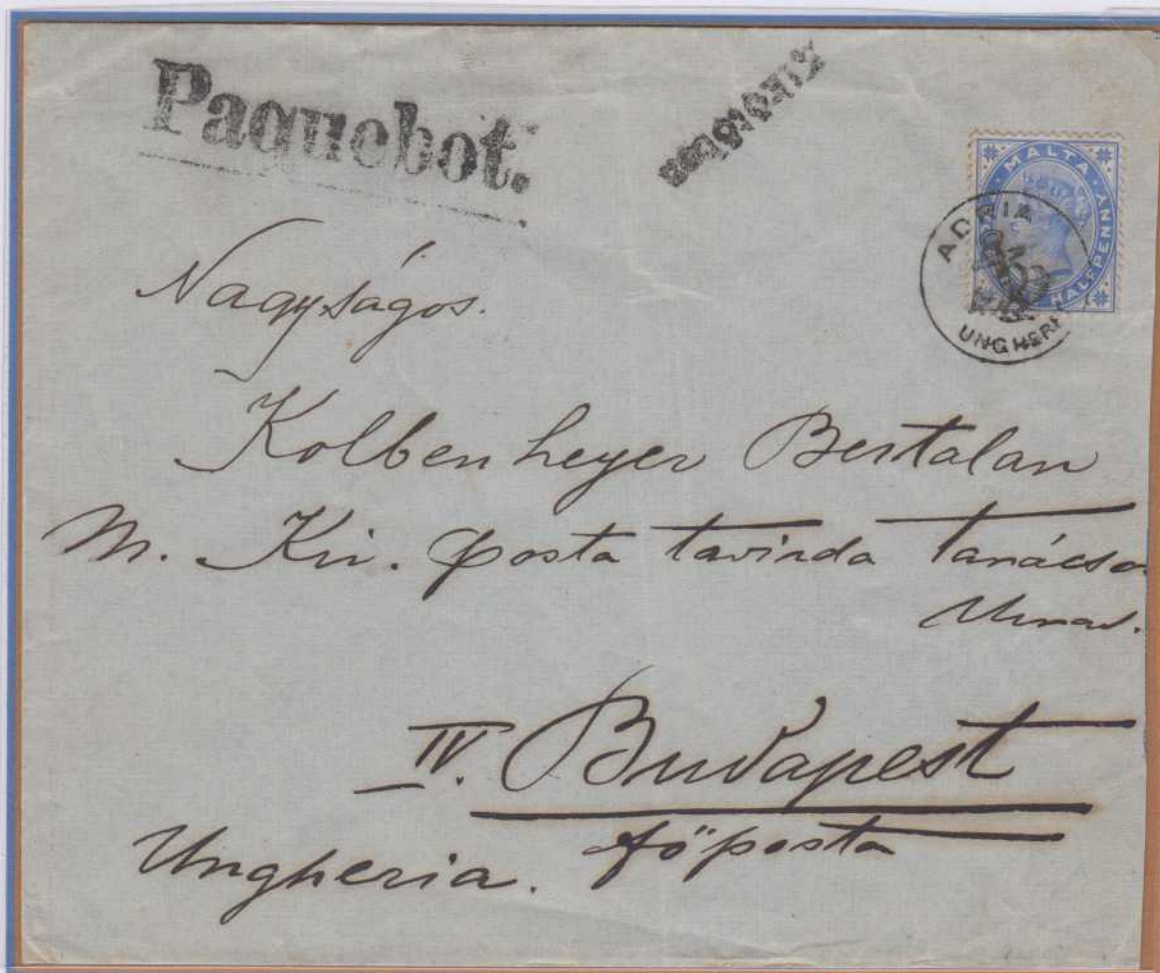 Paquebot.
MALTA
HALFPENNY
ADRIA
UNGHERI
Nagyságos.
Kolbenheyer Bertalan
M. Kir. posta tavirda Tanácso
IV. Budapest
főposta
Ungheria.